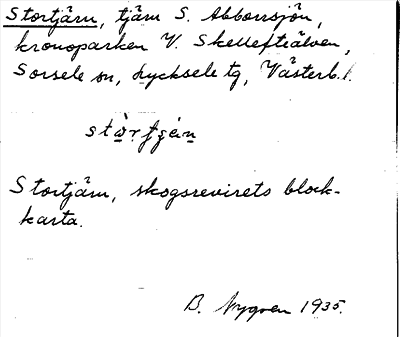 Stortjärn, tjärn S. Abborrsjön,
kronoparken V. Skellefteälven,
Sorsele sn, Lycksele tg, Västerb. l.
Stortjärn, skogsrevirets block-
karta.
B. Nygren 1935.